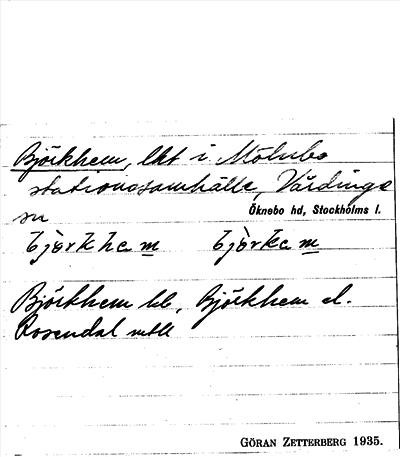 Björkhem, lht i Mölnbo
stationssamhälle, Vårdinge
sn Öknebo hd, Stockholms l.
bjö̀rkhem bjö̀rkem
Björkhem hb, Björkhem el.
Rosendal mtll
GÖRAN ZETTERBERG 1935.